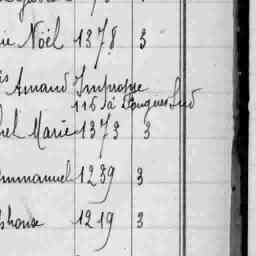 ie Noël 1378 3
is Amand Impropre
116 à Longues Sud
el Marie 1373 3
mmanuel 1239 3
phonse 1219 3